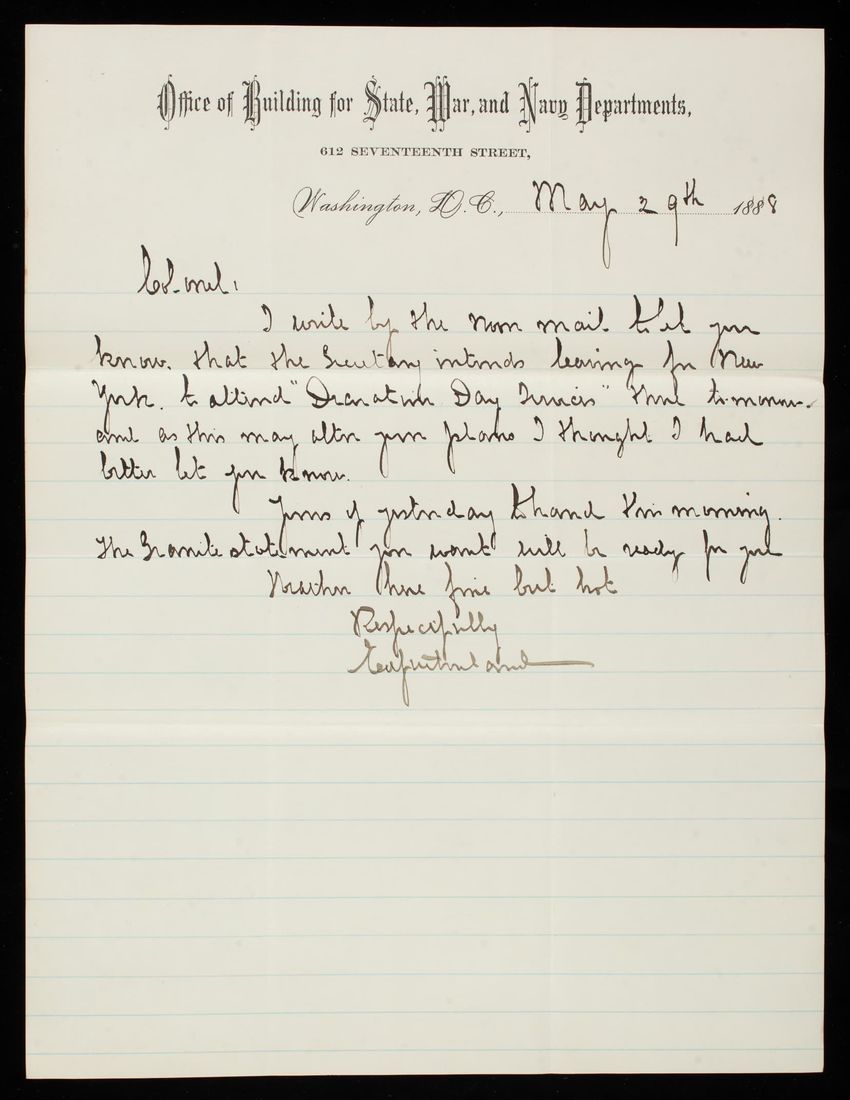 Office of Building for State, War, and Navy Departments,
612 SEVENTEENTH STREET,
Washington, D.C., May 29th 1888
Colonel:
I write by the noon mail to let you
know. that the Secretary intends leaving for New
York. to attend "Decoration Day Services" there to-morrow.
and as this may alter your plans I thought I had
better let you know.
Yours of yesterday to hand this morning.
The Granite statement you want will be ready for you
Weather here fine but hot
Respectfully